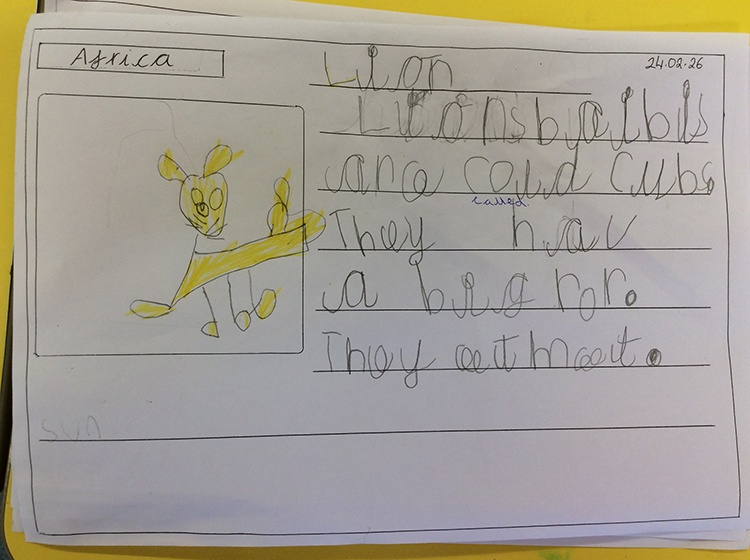 Africa
24.02.26
Lion
Lions bailbis
are colld cubs
called
They hav
a big ror.
They eet meet.
sun